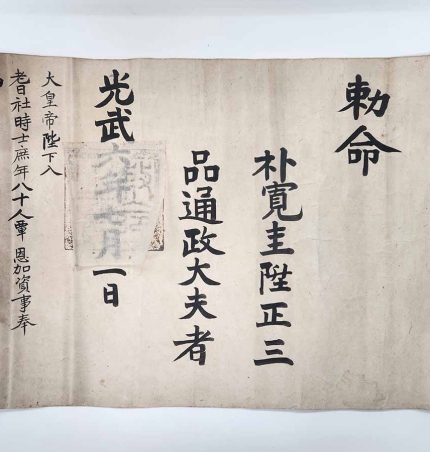 勅命
朴寬圭陞正三
品通政大夫者
光武六年七月一日
大皇帝陛下入
耆社時士庶年八十人覃恩加資事奉